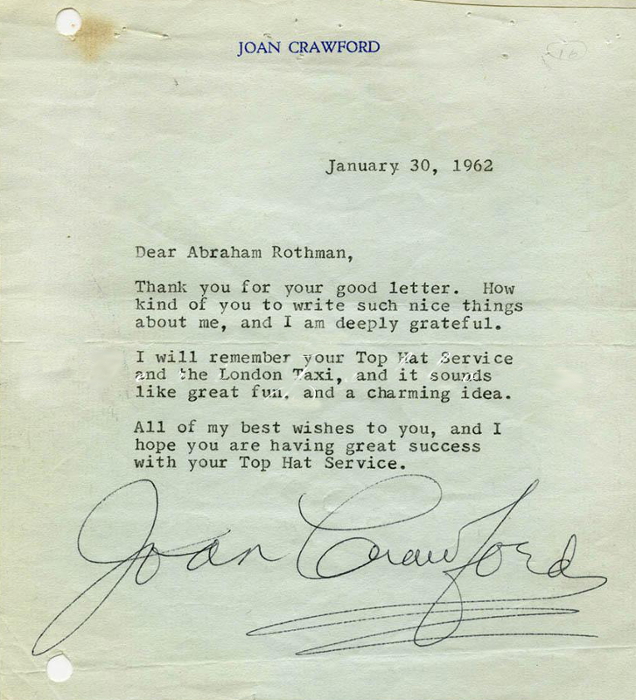 JOAN CRAWFORD
January 30, 1962
Dear Abraham Rothman,
Thank you for your good letter. How
kind of you to write such nice things
about me, and I am deeply grateful.
I will remember your Top Hat Service
and the London Taxi, and it sounds
like great fun, and a charming idea.
All of my best wishes to you, and I
hope you are having great success
with your Top Hat Service.
Joan Crawford